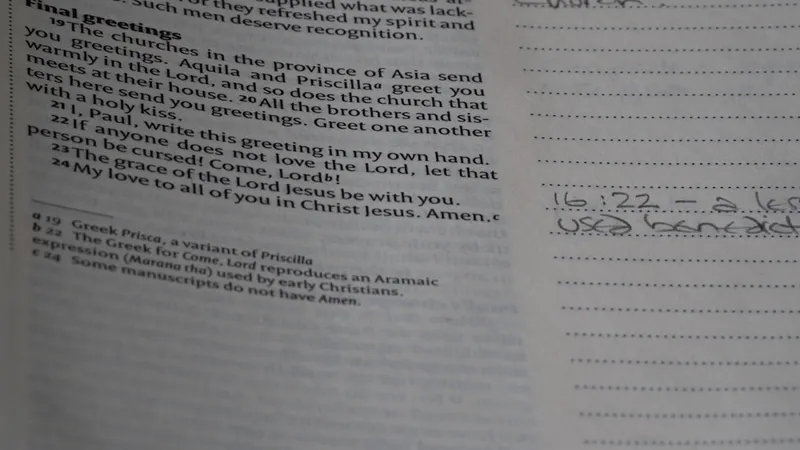 supplied what was lack-
they refreshed my spirit and
Such men deserve recognition.
Final greetings
19The churches in the province of Asia send
you greetings. Aquila and Priscillaa greet you
warmly in the Lord, and so does the church that
meets at their house. 20All the brothers and sis-
ters here send you greetings. Greet one another
with a holy kiss.
21I, Paul, write this greeting in my own hand.
22If anyone does not love the Lord, let that
person be cursed! Come, Lordb!
23The grace of the Lord Jesus be with you.
24My love to all of you in Christ Jesus. Amen.c
a 19 Greek Prisca, a variant of Priscilla
b 22 The Greek for Come, Lord reproduces an Aramaic
expression (Marana tha) used by early Christians.
c 24 Some manuscripts do not have Amen.
16:22 – a
used